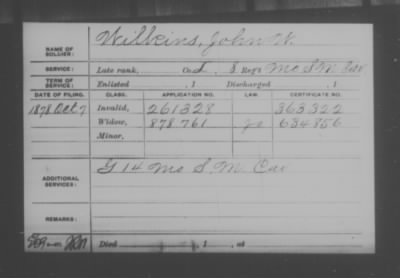 NAME OF SOLDIER: Wilkins, John W.
SERVICE: Late rank, Co. L, 8 Reg't Mo S M Cav
TERM OF SERVICE: Enlisted , 1 Discharged , 1
DATE OF FILING. CLASS. APPLICATION NO. LAW. CERTIFICATE NO.
1878 Oct 7 Invalid, 261328 363322
Widow, 878761 634856
Minor,
ADDITIONAL SERVICES: G 14 Mo S. M. Cav
REMARKS:
Died , 1 , at